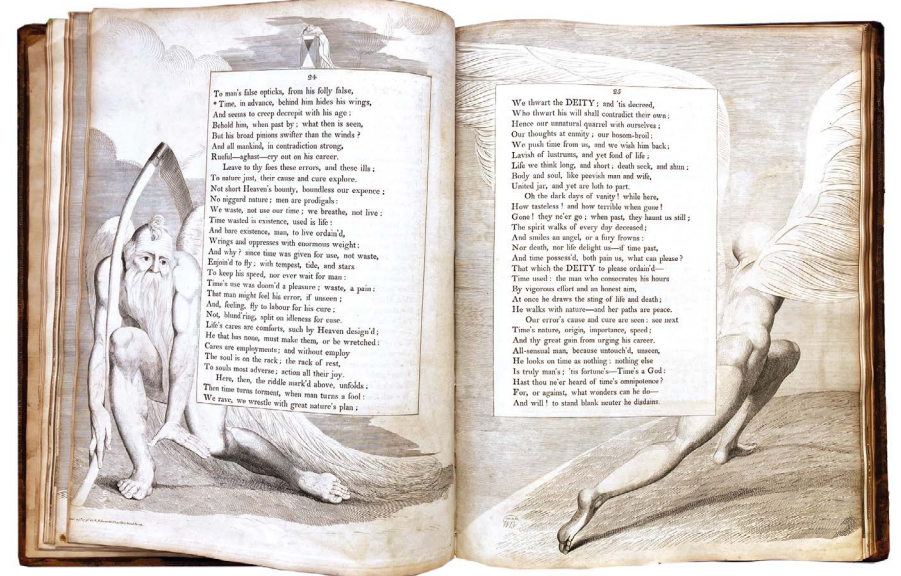 24
To man's false opticks, from his folly false,
* Time, in advance, behind him hides his wings,
And seems to creep decrepit with his age:
Behold him, when past by; what then is seen,
But his broad pinions swifter than the winds?
And all mankind, in contradiction strong,
Rueful—aghast—cry out on his career.
Leave to thy foes these errors, and these ills;
To nature just, their cause and cure explore.
Not short Heaven's bounty, boundless our expence;
No niggard nature; men are prodigals:
We waste, not use our time; we breathe, not live:
Time wasted is existence, used is life:
And bare existence, man, to live ordain'd,
Wrings and oppresses with enormous weight:
And why? since time was given for use, not waste,
Enjoin'd to fly; with tempest, tide, and stars
To keep his speed, nor ever wait for man:
Time's use was doom'd a pleasure; waste, a pain:
That man might feel his error, if unseen;
And, feeling, fly to labour for his cure;
Not, blund'ring, split on idleness for ease.
Life's cares are comforts, such by Heaven design'd;
He that has none, must make them, or be wretched:
Cares are employments; and without employ
The soul is on the rack; the rack of rest,
To souls most adverse; action all their joy.
Here, then, the riddle mark'd above, unfolds;
Then time turns torment, when man turns a fool:
We rave, we wrestle with great nature's plan;
25
We thwart the DEITY; and 'tis decreed,
Who thwart his will shall contradict their own:
Hence our unnatural quarrel with ourselves;
Our thoughts at enmity; our bosom-broil:
We push time from us, and we wish him back;
Lavish of lustrums, and yet fond of life;
Life we think long, and short; death seek, and shun;
Body and soul, like peevish man and wife,
United jar, and yet are loth to part.
Oh the dark days of vanity! while here,
How tasteless! and how terrible when gone!
Gone! they ne'er go; when past, they haunt us still;
The spirit walks of every day deceased;
And smiles an angel, or a fury frowns:
Nor death, nor life delight us—if time past,
And time possess'd, both pain us, what can please?
That which the DEITY to please ordain'd—
Time used: the man who consecrates his hours
By vigorous effort and an honest aim,
At once he draws the sting of life and death;
He walks with nature—and her paths are peace.
Our error's cause and cure are seen: see next
Time's nature, origin, importance, speed;
And thy great gain from urging his career.
All-sensual man, because untouch'd, unseen,
He looks on time as nothing: nothing else
Is truly man's; 'tis fortune's—Time's a God:
Hast thou ne'er heard of time's omnipotence?
For, or against, what wonders can he do—
And will! to stand blank neuter he disdains.